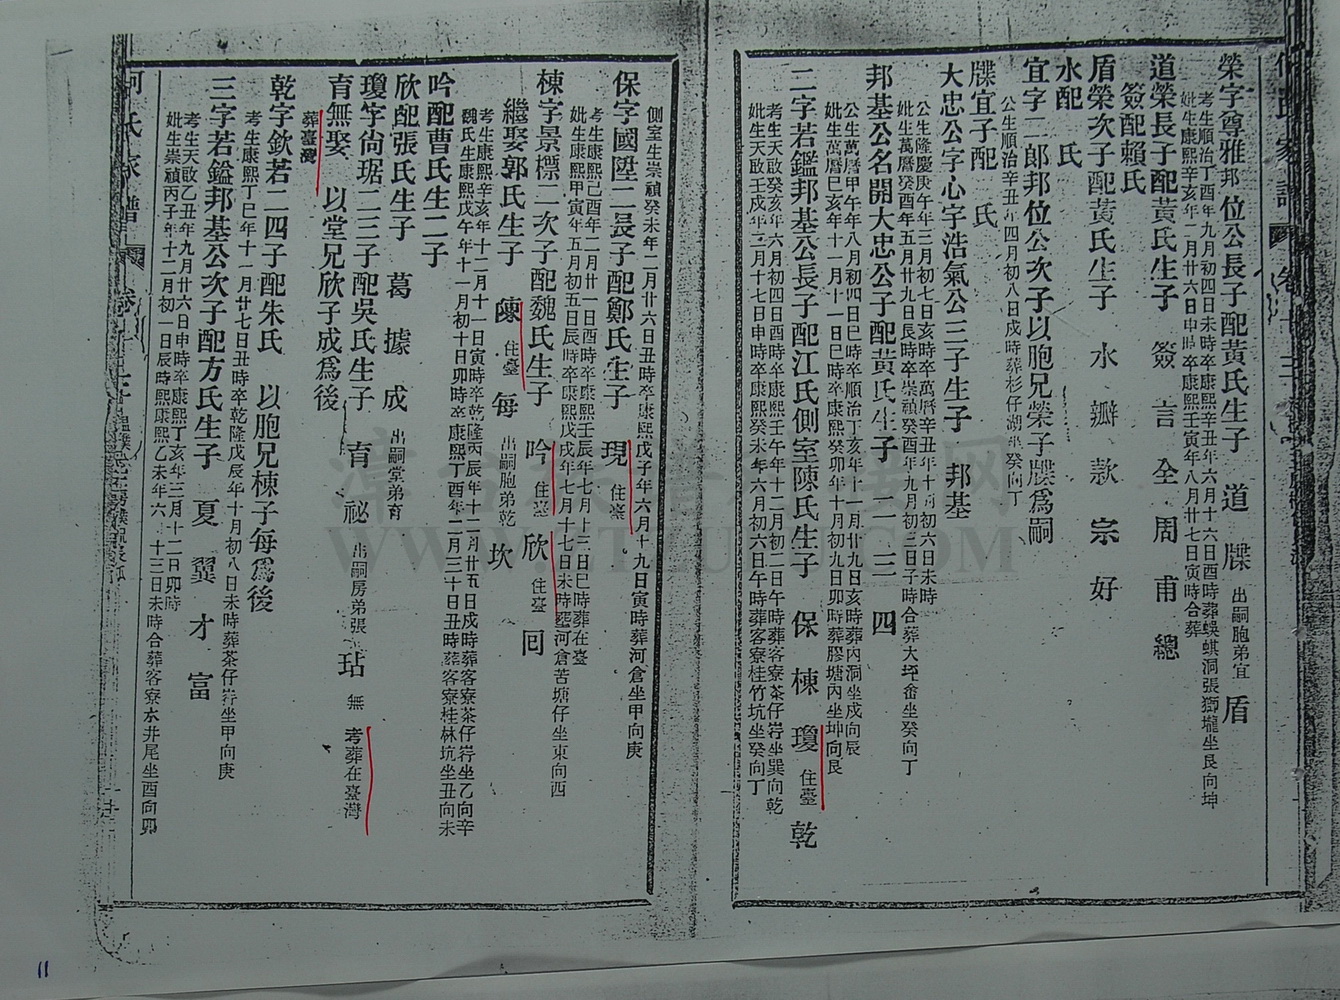 榮字尊雅邦位公長子配黃氏生子 道 牒 出嗣胞弟宜 盾
考生順治丁酉年九月初四日未時卒康熙辛丑年六月十六日酉時葬蜈蜞洞張獅壠坐艮向坤
妣生康熙辛亥年二月廿六日申時卒康熙壬寅年八月廿七日寅時合葬
道榮長子配黃氏生子 簽 言 全 周 甫 總
簽配賴氏
盾榮次子配黃氏生子 水 瓣 款 宗 好
水配 氏
宜字二郎邦位公次子以胞兄榮子牒為嗣
公生順治辛丑年四月初八日戌時葬杉仔湖坐癸向丁
牒宜子配 氏
大忠公字心字浩氣公三子生子 邦基
公生隆慶庚午年三月初七日亥時卒萬曆辛丑年十月初六日未時
妣生萬曆癸酉年五月廿九日辰時卒崇禎癸酉年九月初三日子時合葬大坪畬坐癸向丁
邦基公名開大忠公子配黃氏生子 二 三 四
公生萬曆甲午年八月初四日巳時卒順治丁亥年十一月廿九日亥時葬內洞坐戌向辰
妣生萬曆己亥年十一月十一日巳時卒康熙癸卯年十月初九日卯時葬膠塘內坐坤向艮
二字若鑑邦基公長子配江氏側室陳氏生子 保 棟 瓊 住臺 乾
考生天啟癸亥年六月初四日酉時卒康熙壬午年十二月初二日午時葬客寮茶仔崁坐巽向乾
妣生天啟壬戌年二月十七日申時卒康熙癸未年六月初六日午時葬客寮桂竹坑坐癸向丁
側室生崇禎癸未年二月廿六日丑時卒康熙戊子年六月十九日寅時葬河倉坐甲向庚
保字國陞二長子配鄭氏生子 現 住臺
考生康熙己酉年二月廿一日酉時卒康熙壬辰年七月上三日巳時葬在臺
妣生康熙甲寅年五月初五日辰時卒康熙戊戌年七月十七日未時葬河倉苦塘仔坐東向西
棟字景標二次子配魏氏生子 吟 住臺 欣 住臺 回
繼娶郭氏生子 陳 住臺 每 出嗣胞弟乾 坎
考生康熙辛亥年十二月十一日寅時卒乾隆丙辰年十二月廿五日戌時葬客寮茶仔崁坐乙向辛
魏氏生康熙戊午年十一月初十日卯時卒康熙丁酉年二月三十日丑時葬客寮桂林坑坐丑向未
吟配曹氏生二子
欣配張氏生子 葛 據 成 出嗣堂弟育
瓊字尚琚二三子配吳氏生子 育 祕 出嗣房弟張 玷 無 考葬在臺灣
育無娶 以堂兄欣子成為後
葬臺灣
乾字欽若二四子配朱氏 以胞兄棟子每為後
考生康熙丁巳年十一月廿七日丑時卒乾隆戊辰年十月初八日未時葬茶仔崁坐甲向庚
三字若鎰邦基公次子配方氏生子 夏 翼 才 富
考生天啟乙丑年九月廿六日申時卒康熙丁亥年三月十二日卯時
妣生崇禎丙子年十二月初一日辰時卒康熙乙未年六月十三日未時合葬客寮水井尾坐酉向卯
何氏家譜
11